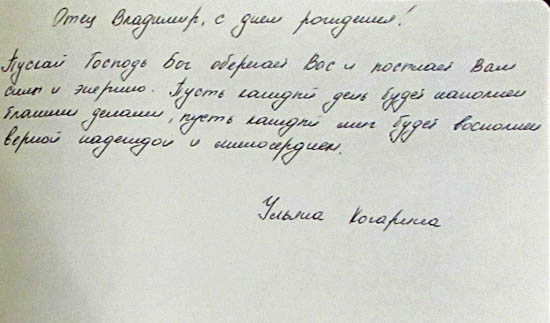 Отец Владимир, с днем рождения!
Пускай Господь Бог оберегает Вас и посылает Вам
силы и энергию. Пусть каждый день будет наполнен
благими делами, пусть каждый миг будет восполнен
верной надеждой и милосердием.
Ульяна